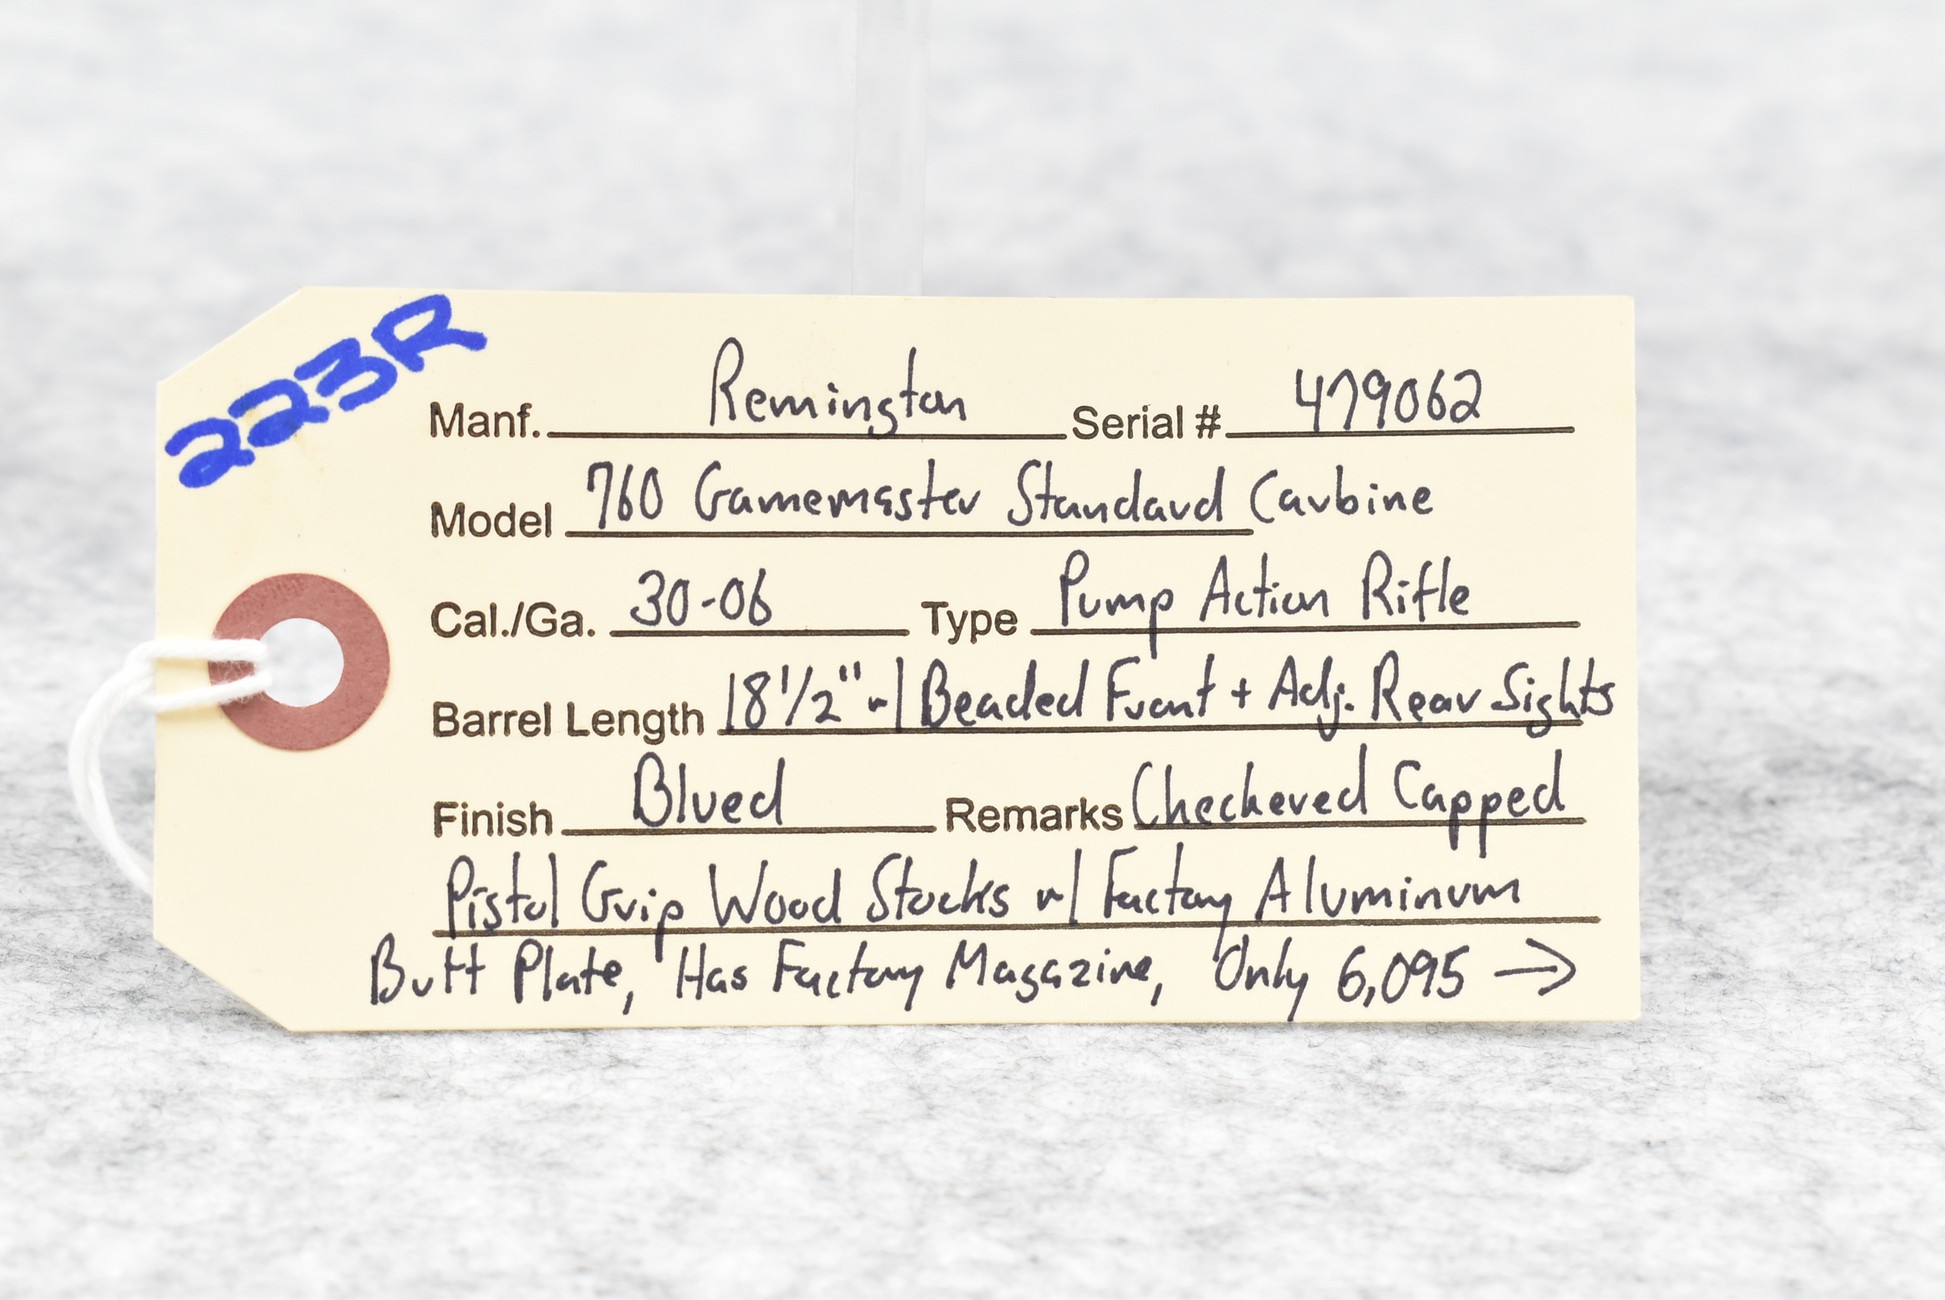 223R
Manf. Remington Serial # 479062
Model 760 Gamemaster Standard Carbine
Cal./Ga. 30-06 Type Pump Action Rifle
Barrel Length 18 1/2" w/ Beaded Front + Adj. Rear Sights
Finish Blued Remarks Checkered Capped
Pistol Grip Wood Stocks w/ Factory Aluminum
Butt Plate, Has Factory Magazine, Only 6,095 →